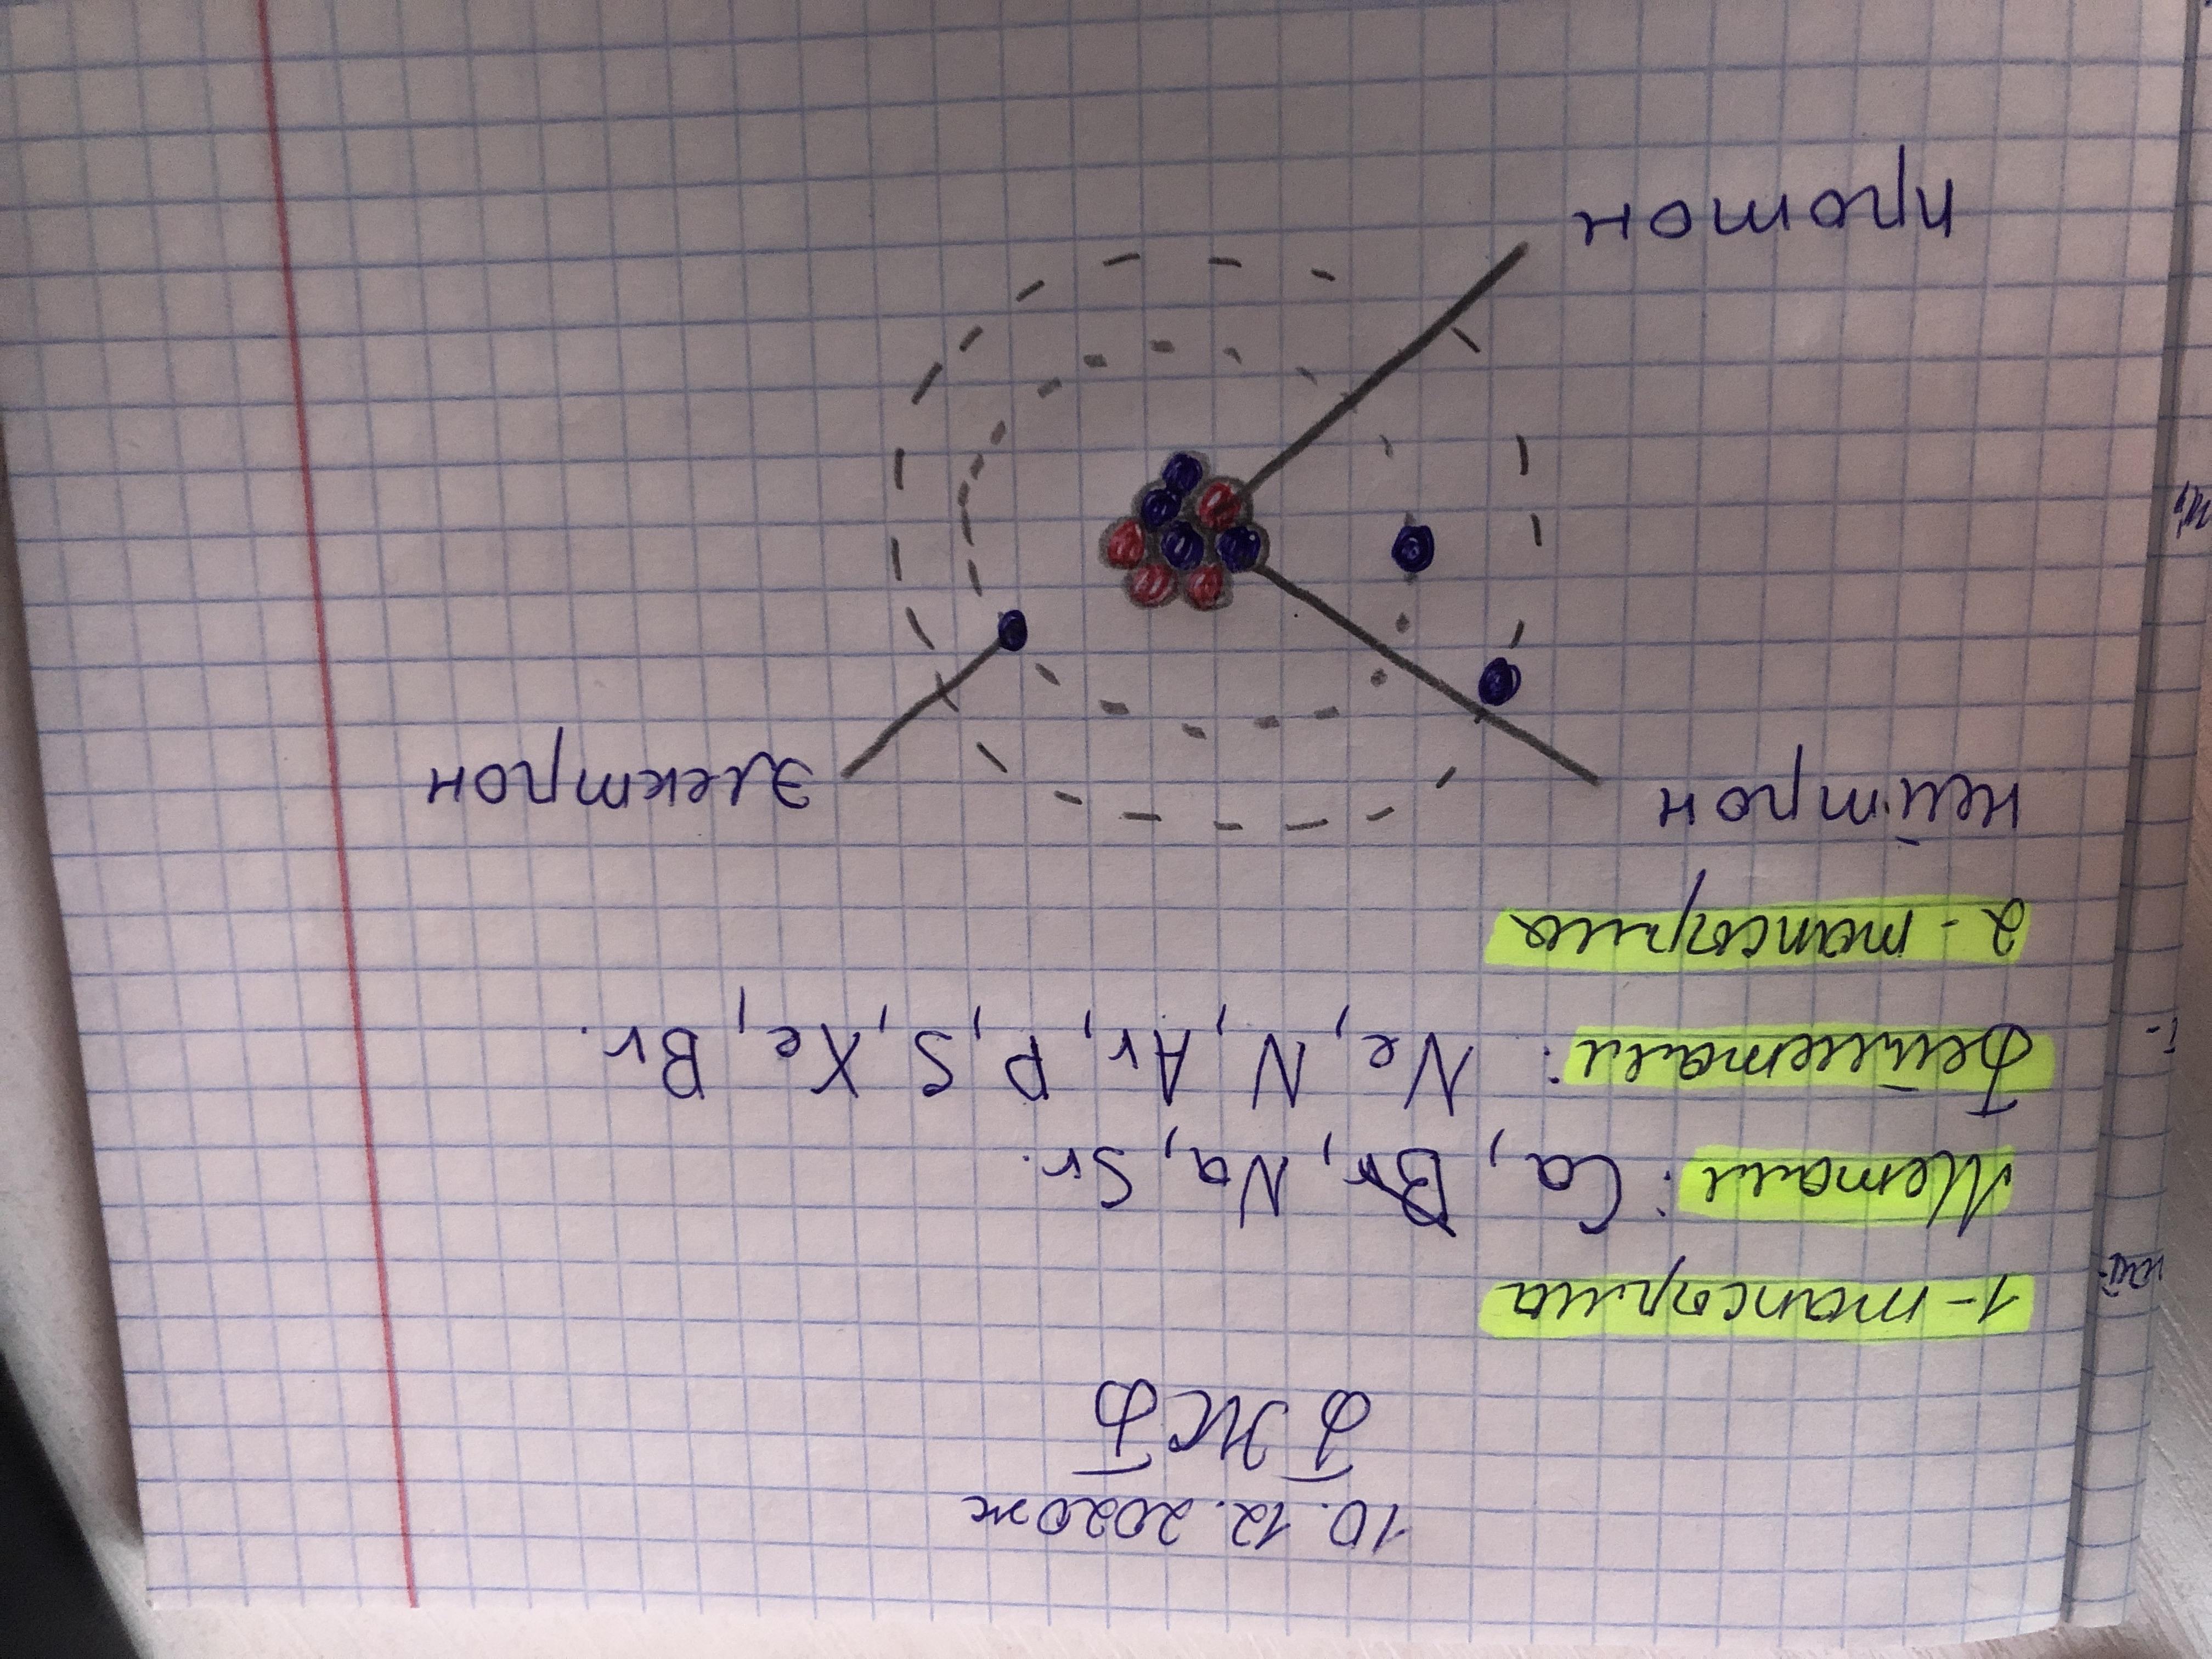 10.12.2020ж
БЖСБ
1-тапсырма
Металл: Ca, Br, Na, Sr.
Бейметалл: Ne, N, Ar, P, S, Xe, Br.
2-тапсырма
нейтрон
электрон
протон